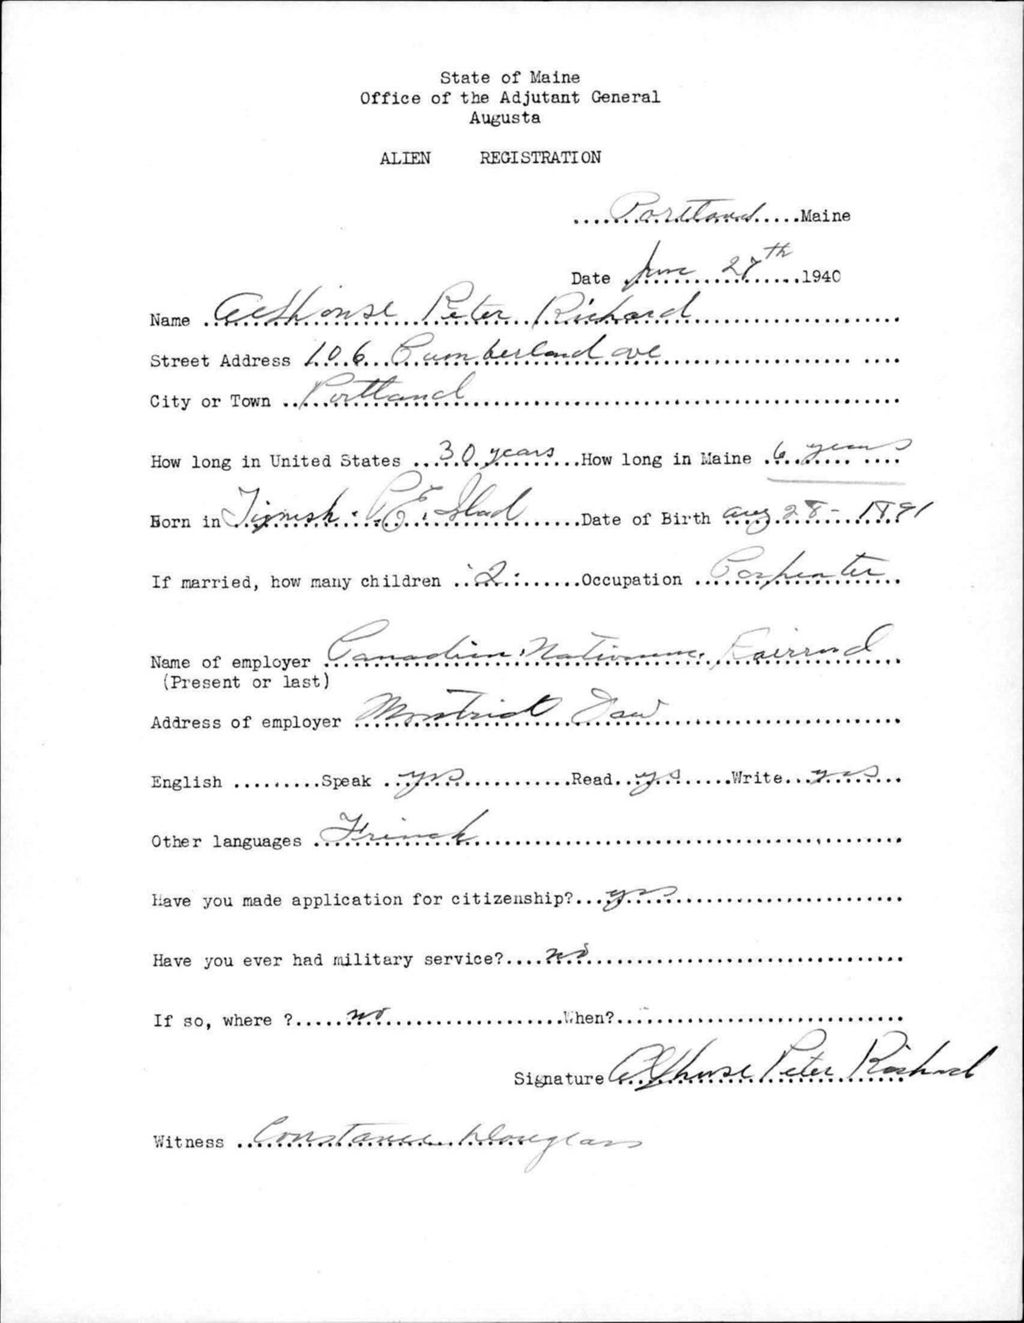 State of Maine
Office of the Adjutant General
Augusta
ALIEN REGISTRATION
.....Portland.....Maine
Date June 27th 1940
Name Alfhonse Peter Richard
Street Address 106 Cumberland ave
City or Town Portland
How long in United States 30 years How long in Maine 6 years
Born in Tignish. P.E. Island Date of Birth aug 28 - 1891
If married, how many children 2 Occupation Carpenter
Name of employer Canadian National Railroad
(Present or last)
Address of employer
English .........Speak yes Read yes Write yes
Other languages French
Have you made application for citizenship? yes
Have you ever had military service? no
If so, where ? no When?
Signature Alfhonse Peter Richard
Witness Constance Douglass